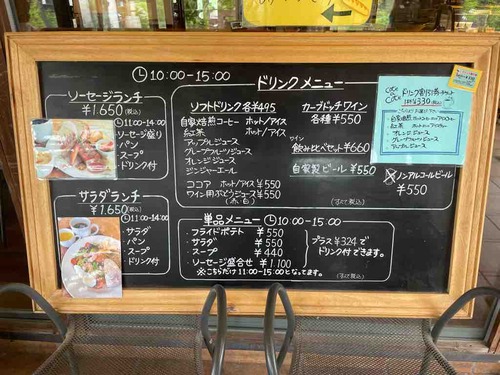 10:00-15:00
ソーセージランチ
¥1,650(税込)
11:00-14:00
・ソーセージ盛り
・パン
・スープ
・ドリンク付
サラダランチ
¥1,650(税込)
11:00-14:00
・サラダ
・パン
・スープ
・ドリンク付
ドリンクメニュー
ソフトドリンク各¥495
自家焙煎コーヒー ホット/アイス
紅茶 ホット/アイス
アップルジュース
グレープフルーツジュース
オレンジジュース
ジンジャーエール
ココア ホット/アイス¥550
ワイン用ぶどうジュース¥550
(赤・白)
カーブドッチワイン
各種¥550
ワイン
飲み比べセット¥660
自家製ビール ¥550
(すべて税込)
ノンアルコールビール
¥550
ドリンク割引券
¥330(税込)
オレンジジュース
単品メニュー 10:00-15:00
・フライドポテト ¥550
・サラダ ¥550
・スープ ¥440
・ソーセージ盛合せ ¥1,100
※こちらだけ11:00-15:00となってます。
プラス¥324で
ドリンク付できます。
(すべて税込)